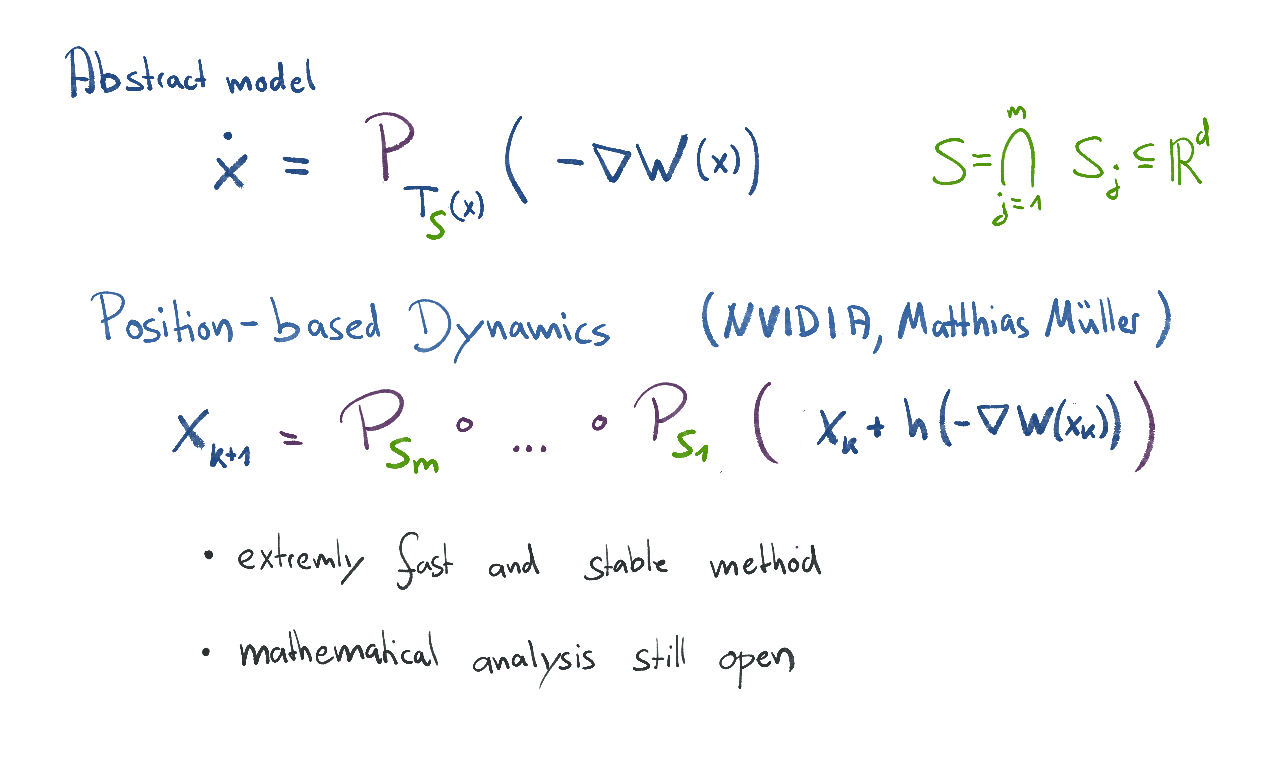 Abstract model
ẋ = P_{T_S(x)} ( -∇W(x) )    S = ⋂_{j=1}^{m} S_j ⊆ ℝ^d
Position-based Dynamics (NVIDIA, Matthias Müller)
x_{k+1} = P_{S_m} ∘ ... ∘ P_{S_1} ( x_k + h(-∇W(x_k)) )
• extremly fast and stable method
• mathematical analysis still open